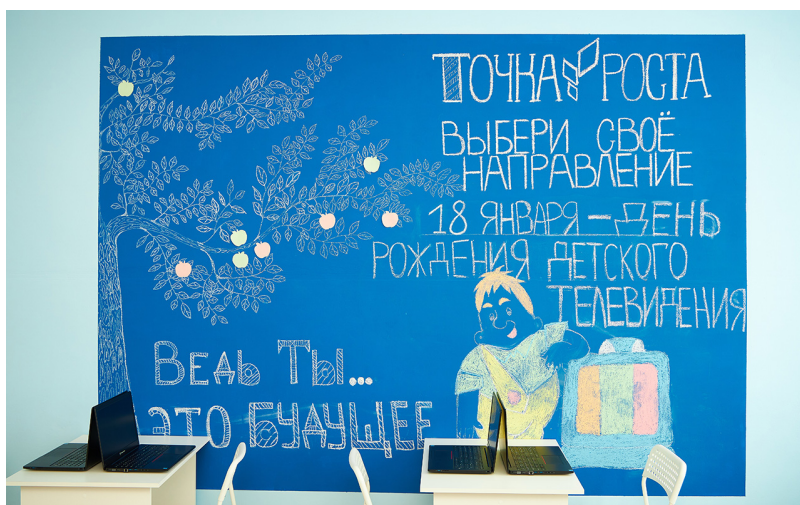 ТОЧКА РОСТА
ВЫБЕРИ СВОЁ
НАПРАВЛЕНИЕ
18 ЯНВАРЯ – ДЕНЬ
РОЖДЕНИЯ ДЕТСКОГО
ТЕЛЕВИДЕНИЯ
ВЕДЬ ТЫ...
ЭТО БУДУЩЕЕ